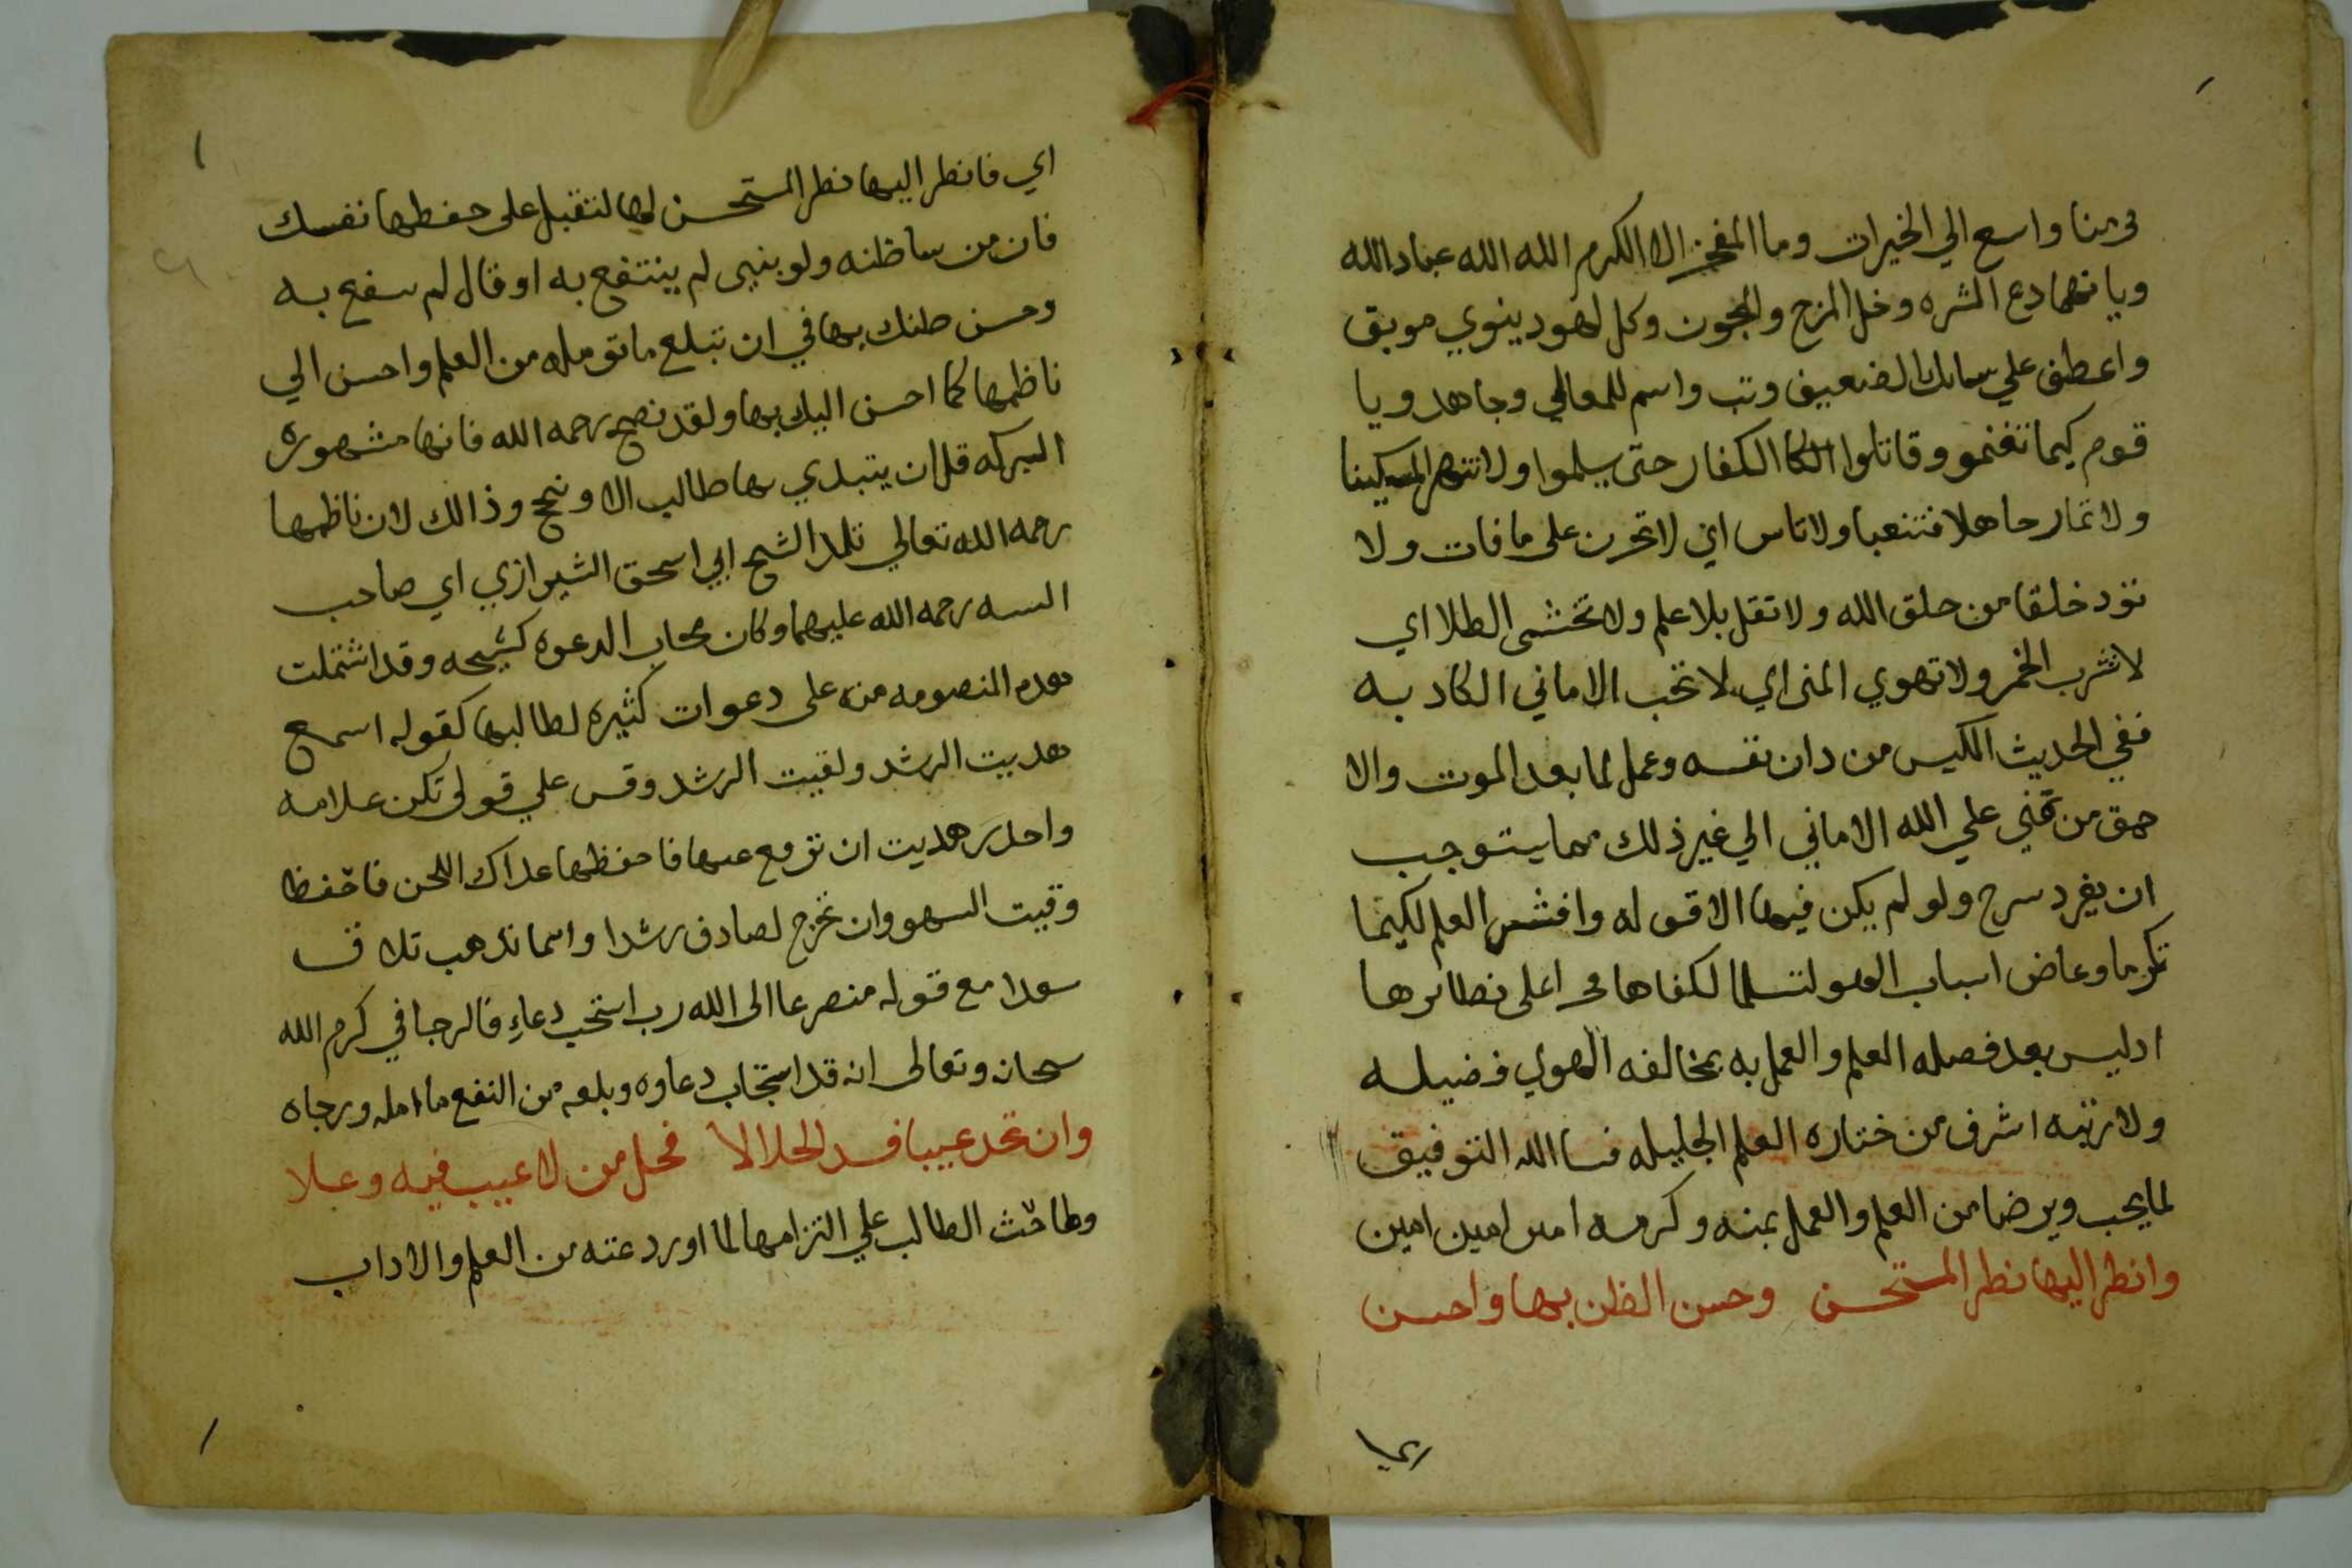 قرينا واسع الي الخيرات وما المفخر الا الكرم الله الله عباد الله
ويا نهما دع الشره وخل المزح والمجون وكل لهو دينوي موبق
واعطف علي سايلك الضعيف وتب واسم للمعالي وجاهد ويا
قوم كيما تغنمو وقاتلوا الكفار حتى يسلموا ولا تنتهر المسكينا
ولا تمار جاهلا فتتعبا ولا تاس اي لا تحزن على ما فات ولا
تؤد خلقا من خلق الله ولا تقل بلا علم ولا تحتسى الطلا اي
لا تشرب الخمر ولا تهوي المنى اي لا تحب الاماني الكاد به
ففي الحديث الكيس من دان نفسه وعمل لما بعد الموت والا
حمق من تمنى علي الله الاماني الي غير ذلك مما يستوجب
ان يفرد سرح ولو لم يكن فيها الا قوله وافش العلم لكيما
تكرما وعاص اسباب الهوى لتسلما لكفاها فخرا على نظائرها
ادليس بعد فصله العلم والعمل به بمخالفه الهوي فضيله
ولا رتبه اشرف من العلم الجليله فسا الله التوفيق
لما يحب ويرضا من العلم والعمل بمنه وكرمه امين امين امين
وانظر اليها نظر المستحسن وحسن الظن بها واحسن
اي فانظر اليها نظر المستحسن لها لتقبل على حفظها نفسك
فان من ساظنه ولو بنبي لم ينتفع به او قال لم ينفع به
وحسن ظنك بها في ان تبلغ ما تومله من العلم واحسن الي
ناظمها كما احسن اليك بها ولقد نصح رحمه الله فانها مشهوره
البركه قل ان يبتدي بها طالب الا ونجح وذالك لان ناظمها
رحمه الله تعالي تلميذ الشيخ ابي اسحق الشيرازي اي صاحب
التنبيه رحمه الله عليهما وكان مجاب الدعوه كشيخه وقد اشتملت
هده المنصومه منه على دعوات كثيره لطالبها كقوله اسمع
هديت الرشد ولقيت الرشد وقس علي قولي تكن علامه
واحذر هديت ان تزيغ عنها فاحفظها عداك اللحن فاحفظا
وقيت السهو وان تخرج لصادف رشدا واينما تدهب تلاق
سعدا مع قوله متضرعا الى الله رب استجب دعاءِ فالرجا في كرم الله
سبحانه وتعالى انه قد استجاب دعاوه وبلغه من النفع ما امله ورجاه
وان تجد عيبا فسد الخلالا فجل من لا عيب فيه وعلا
ولما حث الطالب علي التزامها لما اوردعته من العلم والاداب